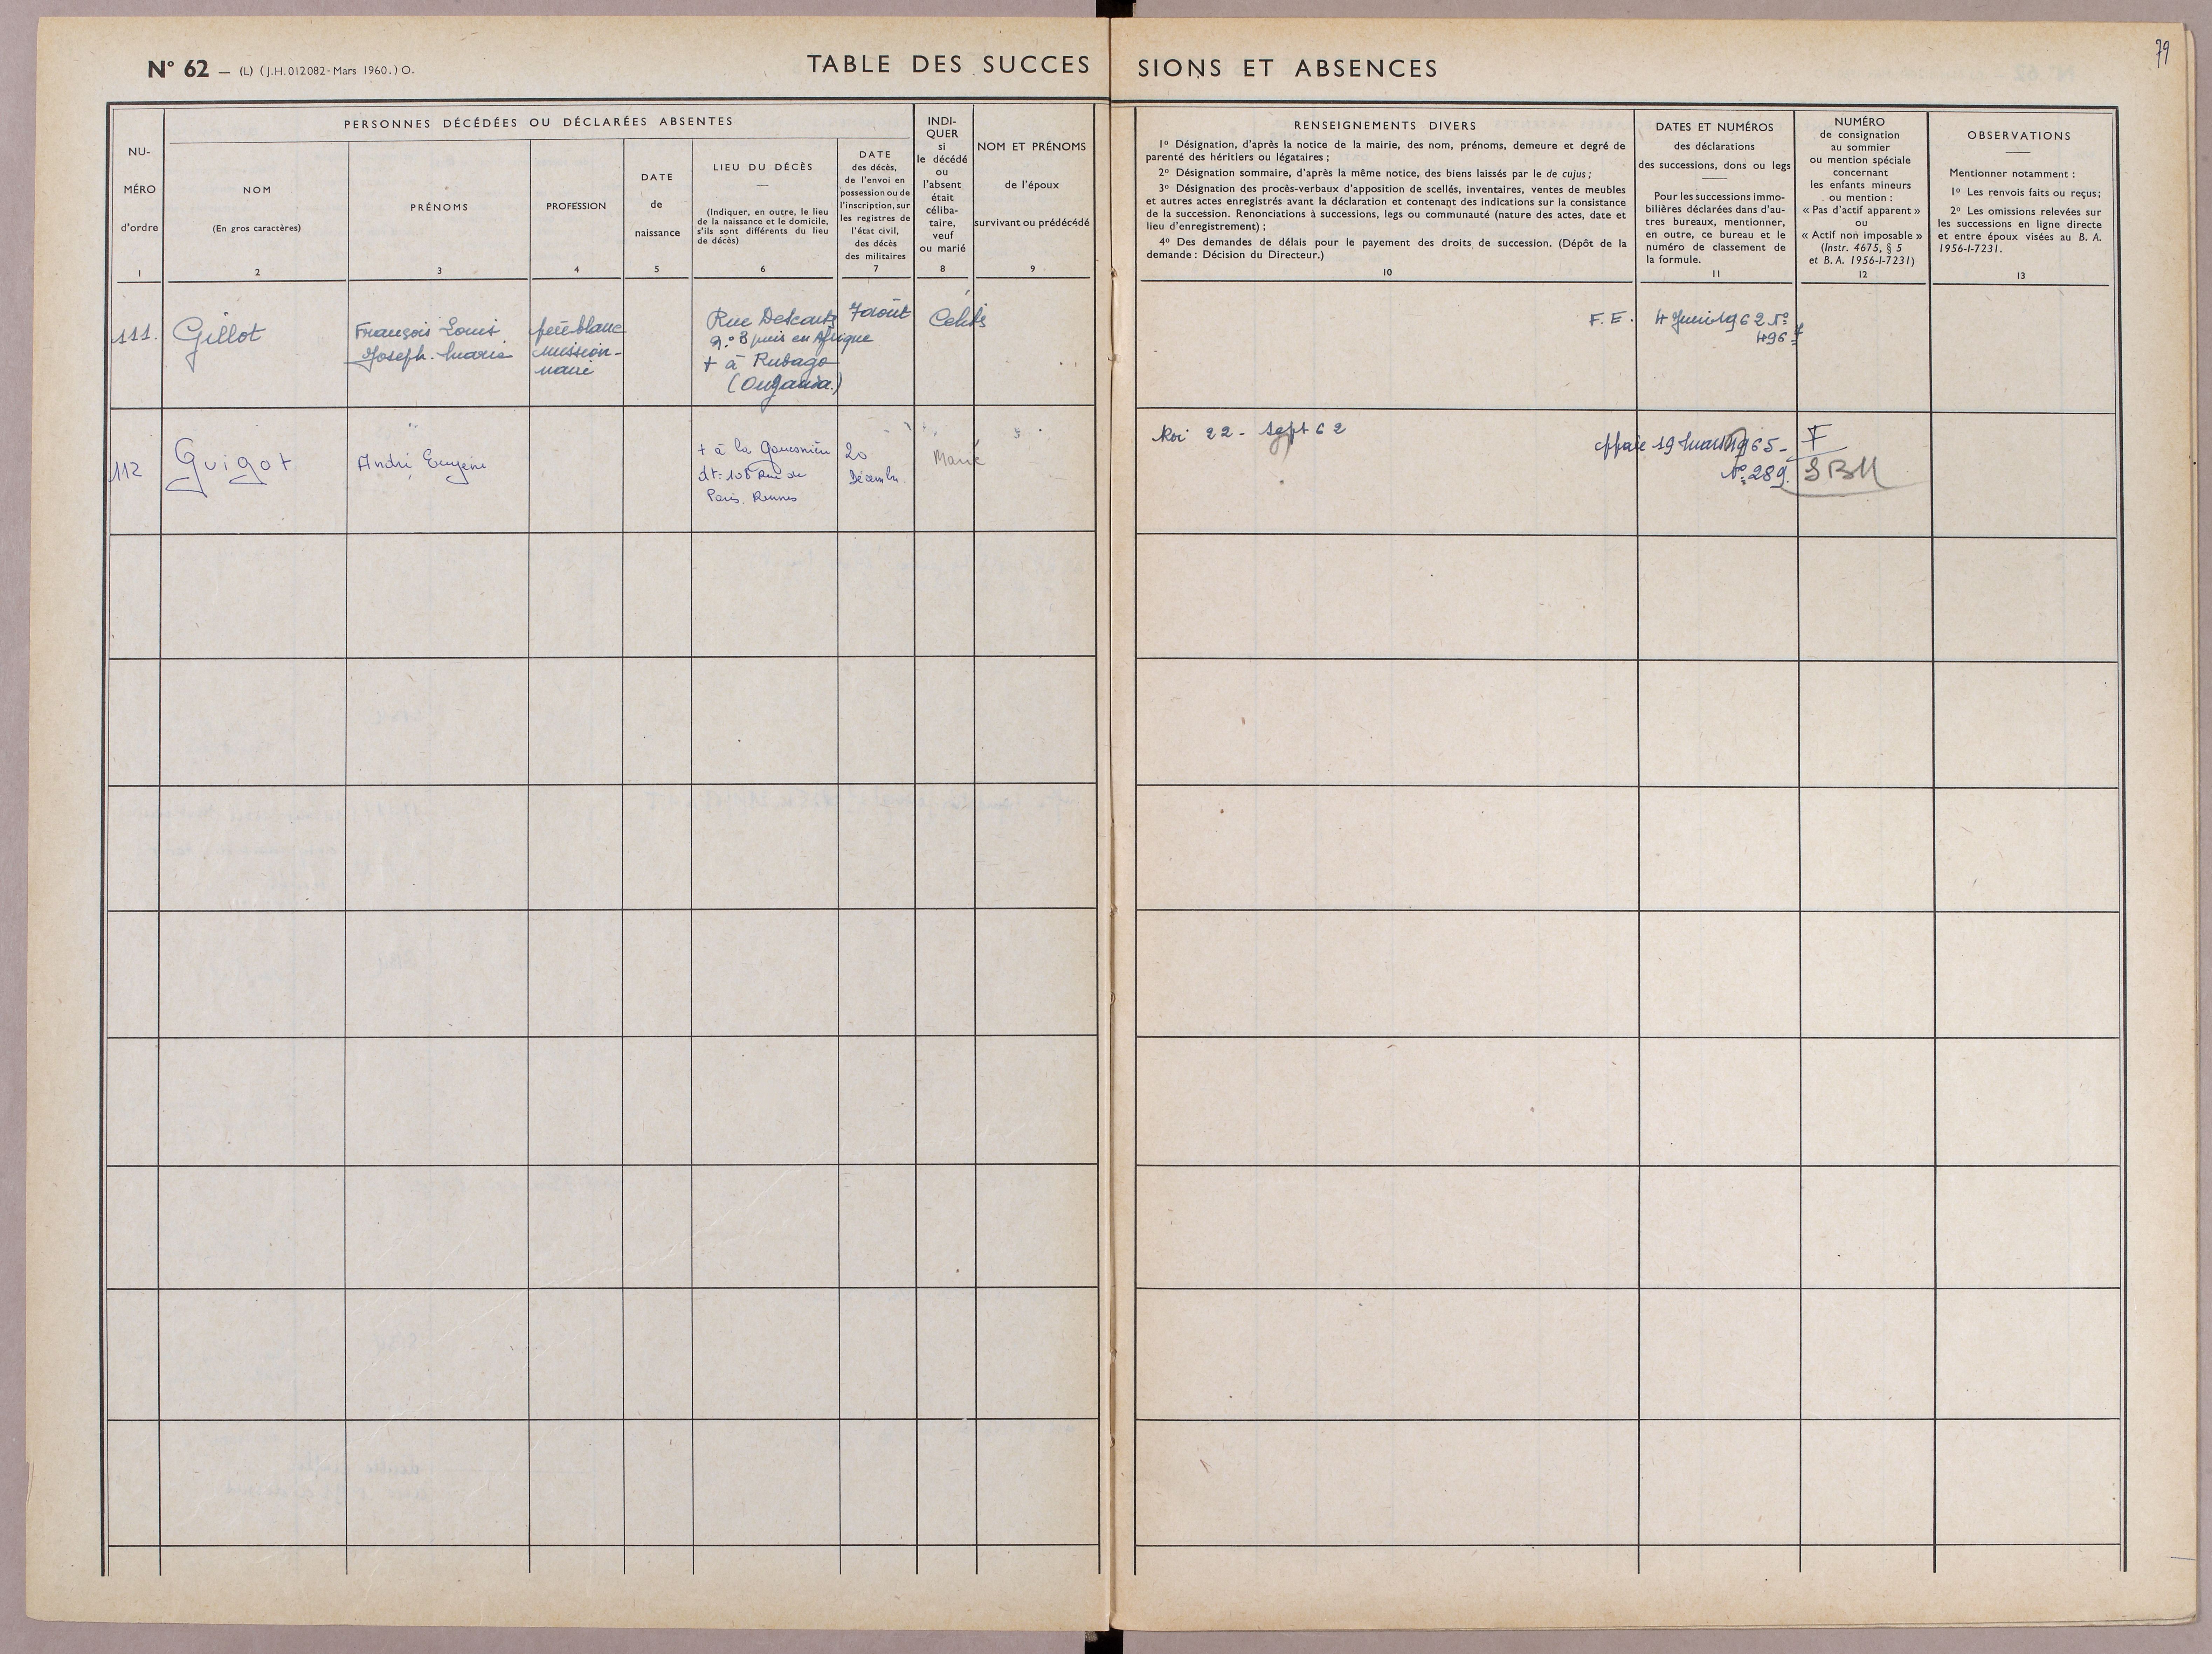 79
N° 62 — (L) (J.H. 012082 - Mars 1960.) O.
TABLE DES SUCCESSIONS ET ABSENCES
NU-
MÉRO
d'ordre
1
PERSONNES DÉCÉDÉES OU DÉCLARÉES ABSENTES
NOM
(En gros caractères)
2
PRÉNOMS
3
PROFESSION
4
DATE
de
naissance
5
LIEU DU DÉCÈS
(Indiquer, en outre, le lieu
de la naissance et le domicile,
s'ils sont différents du lieu
de décès)
6
DATE
des décès,
de l'envoi en
possession ou de
l'inscription, sur
les registres de
l'état civil,
des décès
des militaires
7
INDI-
QUER
si
le décédé
ou
l'absent
était
céliba-
taire,
veuf
ou marié
8
NOM ET PRÉNOMS
de l'époux
survivant ou prédécédé
9
RENSEIGNEMENTS DIVERS
1° Désignation, d'après la notice de la mairie, des nom, prénoms, demeure et degré de
parenté des héritiers ou légataires ;
2° Désignation sommaire, d'après la même notice, des biens laissés par le de cujus ;
3° Désignation des procès-verbaux d'apposition de scellés, inventaires, ventes de meubles
et autres actes enregistrés avant la déclaration et contenant des indications sur la consistance
de la succession. Renonciations à successions, legs ou communauté (nature des actes, date et
lieu d'enregistrement) ;
4° Des demandes de délais pour le payement des droits de succession. (Dépôt de la
demande : Décision du Directeur.)
10
DATES ET NUMÉROS
des déclarations
des successions, dons ou legs
Pour les successions immo-
bilières déclarées dans d'au-
tres bureaux, mentionner,
en outre, ce bureau et le
numéro de classement de
la formule.
11
NUMÉRO
de consignation
au sommier
ou mention spéciale
concernant
les enfants mineurs
ou mention :
« Pas d'actif apparent »
ou
« Actif non imposable »
(Instr. 4675, § 5
et B. A. 1956-I-7231)
12
OBSERVATIONS
Mentionner notamment :
1° Les renvois faits ou reçus ;
2° Les omissions relevées sur
les successions en ligne directe
et entre époux visées au B. A.
1956-I-7231.
13
111.
Gillot
François Louis
Joseph. Marie
père blanc
mission-
naire
Rue Descartes
n° 3 puis en Afrique
+ à Rubago
(Ouganda.)
7 août
Celib
F. E.
4 Juin 1962 N°
496
112
Guigot
André Eugène
+ à la
dt: 108 Rue de
Paris. Rennes
20
Décembre
Marié
22 - Sept 62
19 mars 1965 -
N° 289.
F
SBM